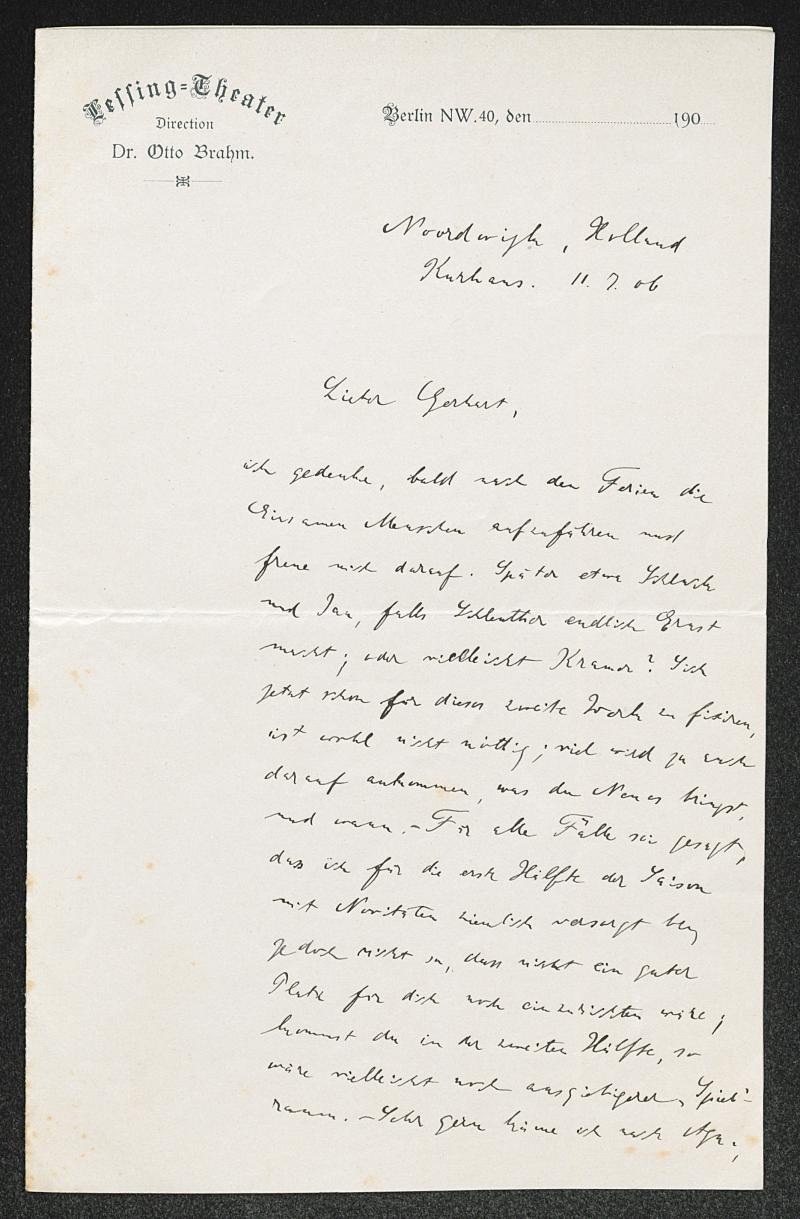 Lessing=Theater
Direction
Dr. Otto Brahm.
Berlin NW. 40, den 190
Noordwijk, Holland
Kurhaus. 11. 7. 06
Lieber Gerhart,
ich gedenke, bald nach den Ferien die
Einsamen Menschen aufzuführen und
freue mich darauf. Später etwa Schluck
und Jau, falls Schlenther endlich Ernst
macht; oder vielleicht Kramer? Sich
jetzt schon für dieses zweite Werk zu fixiren,
ist wohl nicht nöttig; viel wird ja auch
darauf ankommen, was du Neues bringst,
und wann. – Für alle Fälle sei gesagt,
dass ich für die erste Hälfte der Saison
mit Novitäten ziemlich versorgt bin,
jedoch nicht so, dass nicht ein guter
Platz für dich noch einzurichten wäre;
kommst du in der zweiten Hälfte, so
wäre vielleicht noch ausgiebigerer Spiel-
raum. – Sehr gern käme ich nach Agn.;